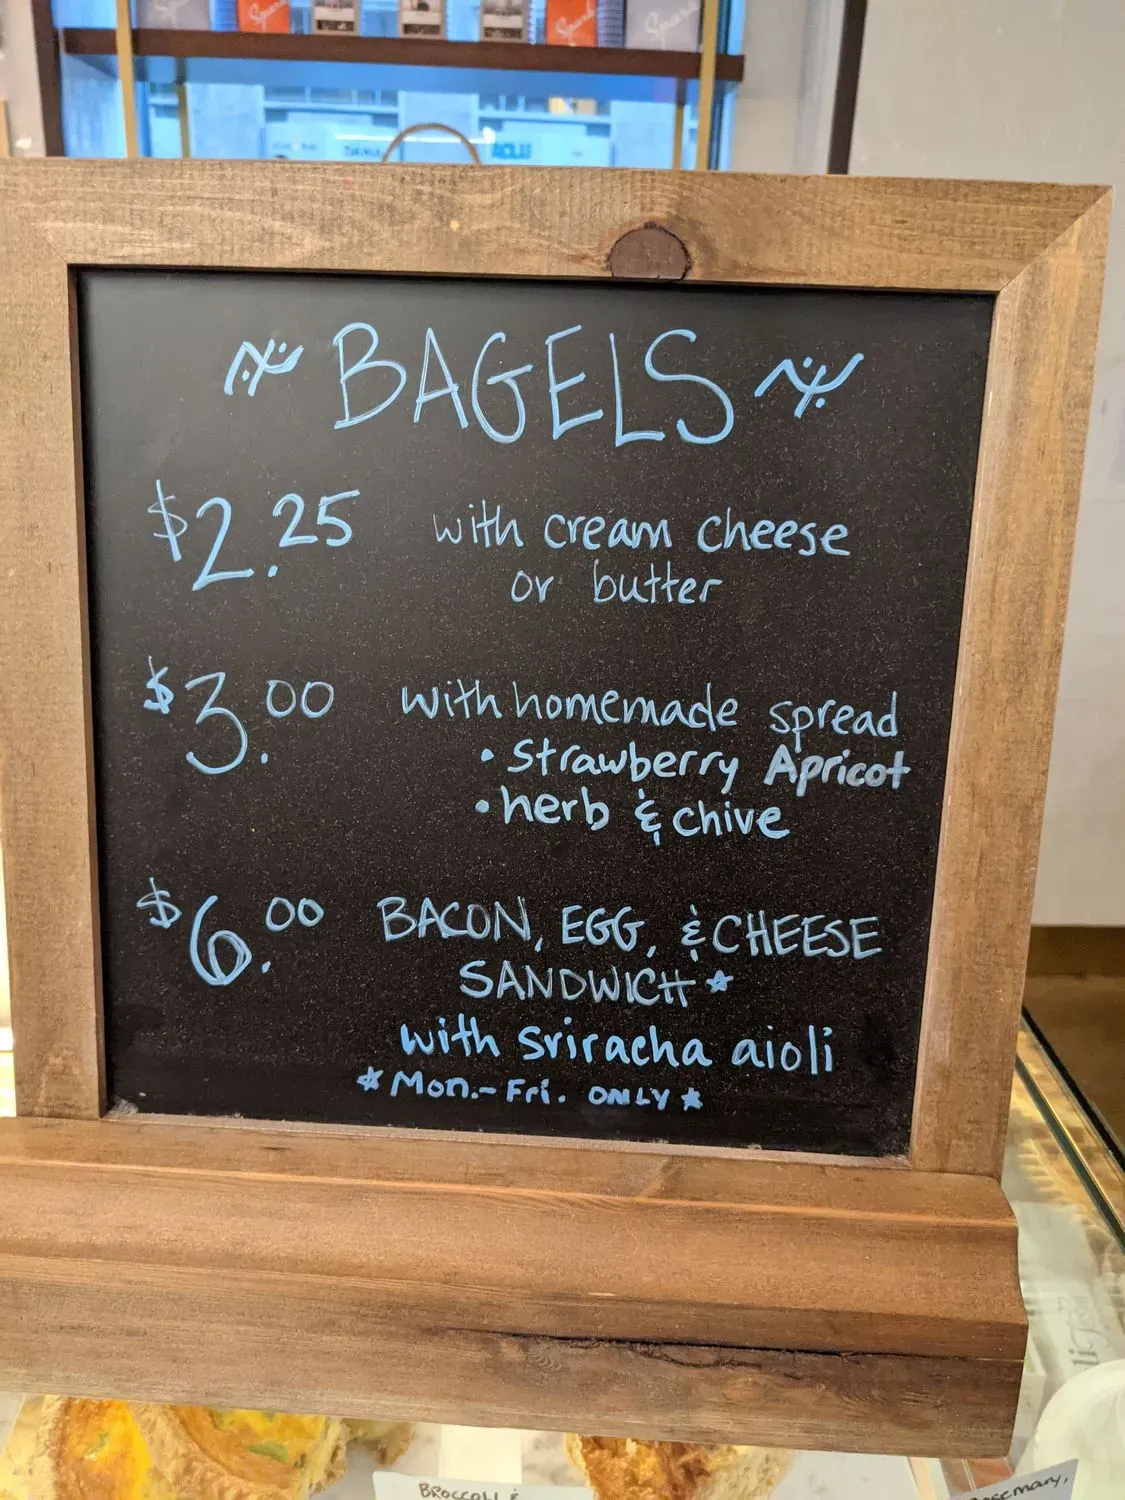 Spark
Spark
Spark
BAGELS
$2.25 with cream cheese
or butter
$3.00 with homemade spread
• strawberry Apricot
• herb & chive
$6.00 BACON, EGG, & CHEESE
SANDWICH*
with sriracha aioli
*Mon.-Fri. ONLY*
BROCCOLI &